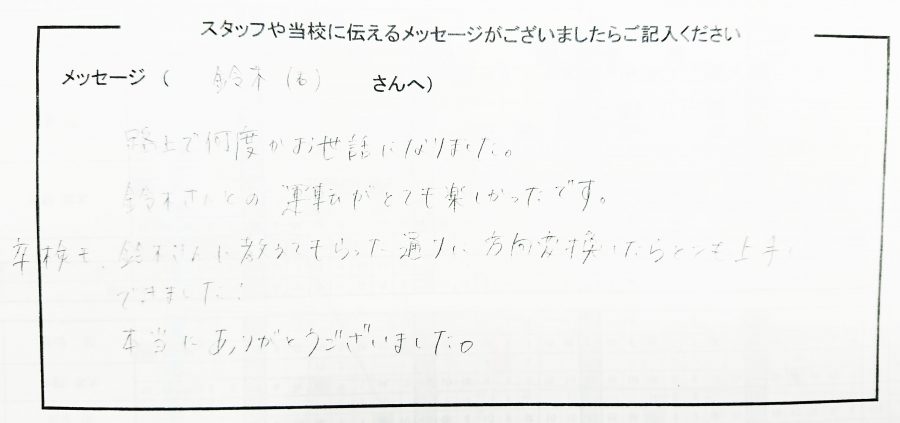 スタッフや当校に伝えるメッセージがございましたらご記入ください
メッセージ ( 鈴木 (る) さんへ)
路上で何度かお世話になりました。
鈴木さんとの運転がとても楽しかったです。
卒検も、鈴木さんに教えてもらった通りに方向変換したらとても上手に
できました!
本当にありがとうございました。